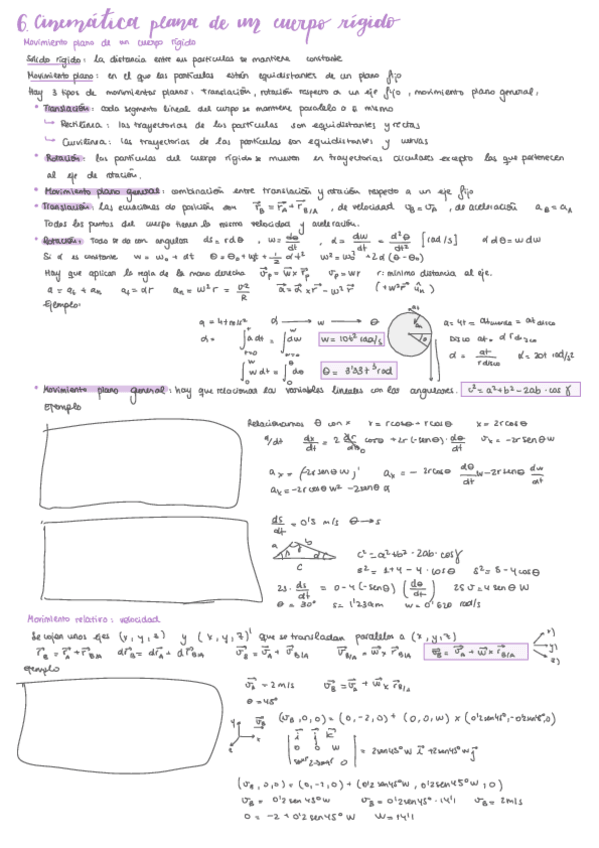 6. Cinemática plana de un cuerpo rígido
Movimiento plano de un cuerpo rígido
Sólido rígido: la distancia entre sus partículas se mantiene constante
Movimiento plano: en el que las partículas están equidistantes de un plano fijo
Hay 3 tipos de movimientos planos: translación, rotación respecto a un eje fijo, movimiento plano general:
• Translación: cada segmento lineal del cuerpo se mantiene paralelo a sí mismo
↳ Rectilínea: las trayectorias de las partículas son equidistantes y rectas
↳ Curvilínea: las trayectorias de las partículas son equidistantes y curvas
• Rotación: las partículas del cuerpo rígido se mueven en trayectorias circulares excepto las que pertenecen
al eje de rotación.
• Movimiento plano general: combinación entre translación y rotación respecto a un eje fijo
• Translación: las ecuaciones de posición son r⃗B = r⃗A + r⃗B/A, de velocidad v⃗B = v⃗A, de aceleración aB = aA
Todos los puntos del cuerpo tienen la misma velocidad y aceleración.
• Rotación: Todo se da con angulos ds = r dθ, w = dθ/dt, α = dw/dt = d²θ/dt² [rad/s] α dθ = w dw
Si α es constante w = w₀ + αt θ = θ₀ + w₀t + 1/2 αt² w² = w₀² + 2α(θ - θ₀)
Hay que aplicar la regla de la mano derecha v⃗p = w⃗ × r⃗p vp = wr r: mínima distancia al eje.
a = at + an at = αr an = w²r = v²/R a⃗ = α⃗ × r⃗ - w²r⃗ (+w²r ûn)
Ejemplo:
a = 4t m/s² α → w → θ
∫ α dt = ∫ dw w = 10t² rad/s
∫ w dt = ∫ dθ θ = 3'33 t³ rad
a = 4t = at cuerda = at disco
Disco at = α r disco
α = at / r disco α = 20t rad/s²
• Movimiento plano general: hay que relacionar las variables lineales con las angulares. c² = a² + b² - 2ab · cos γ
Ejemplo
Relacionamos θ con x x = r cosθ + r cosθ x = 2r cosθ
d/dt dx/dt = 2 dr/dt cosθ + 2r(-senθ) · dθ/dt vx = -2r senθ w
ax = (-2r senθ w)' ax = -2r cosθ dθ/dt w - 2r senθ dw/dt
ax = -2r cosθ w² - 2r senθ α
ds/dt = 0'5 m/s θ → s
a b c
c² = a² + b² - 2ab · cos γ
s² = 1 + 4 - 4 · cos θ s² = 5 - 4 cos θ
2s · ds/dt = 0 - 4(-senθ) (dθ/dt) 2s v = 4 sen θ w
θ = 30° s = 1'239m w = 0'620 rad/s
Movimiento relativo: velocidad
Se cojen unos ejes (x, y, z) y (x, y, z)' que se transladan paralelos a (x, y, z)
r⃗B = r⃗A + r⃗B/A dr⃗B = dr⃗A + dr⃗B/A v⃗B = v⃗A + v⃗B/A v⃗B/A = w⃗ × r⃗B/A v⃗B = v⃗A + w⃗ × r⃗B/A x) y) z)
Ejemplo
v⃗A = 2 m/s v⃗B = v⃗A + w⃗ × r⃗B/A
θ = 45°
y x z v⃗B
(vB, 0, 0) = (0, -2, 0) + (0, 0, w) × (0'2 sen45°, -0'2 sen45°, 0)
(vB, 0, 0) = (0, -2, 0) + (0'2 sen45° w, 0'2 sen45° w, 0)
vB = 0'2 sen 45° w vB = 0'2 sen45° · 14'1 vB = 2 m/s
0 = -2 + 0'2 sen 45° w w = 14'1